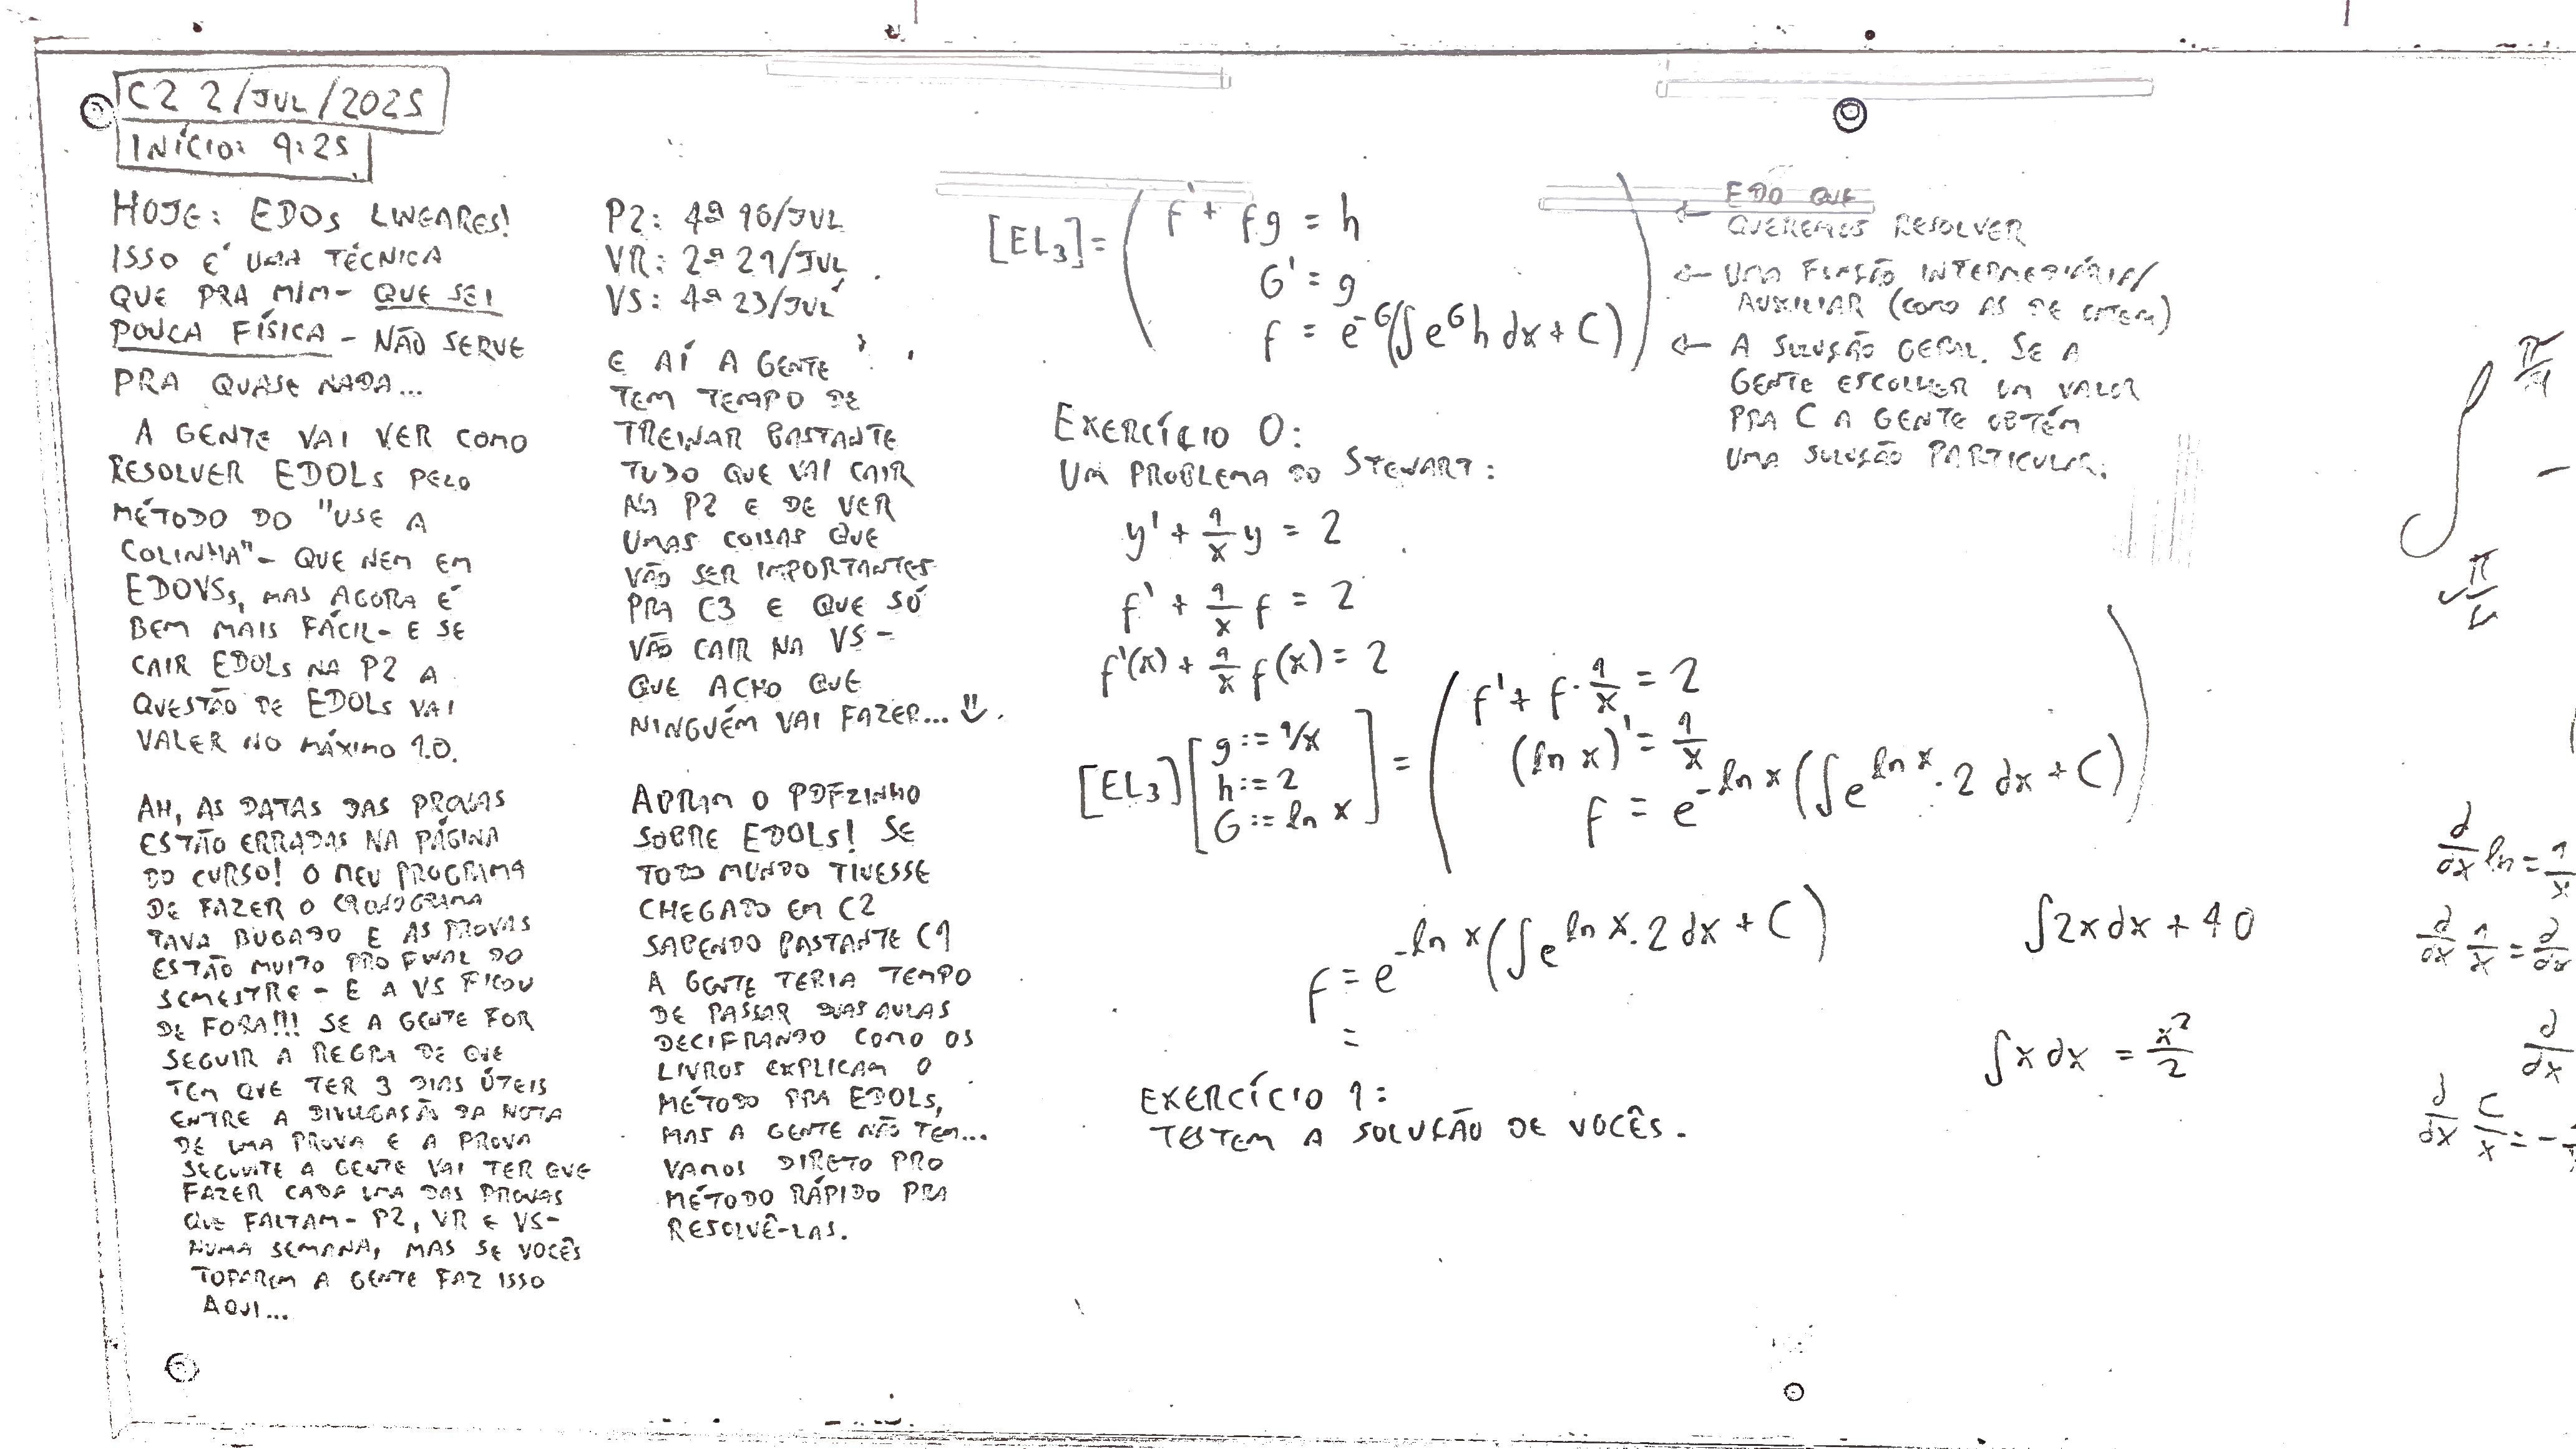 C2 2/JUL/2025
INÍCIO: 9:25
HOJE: EDOS LINEARES!
ISSO É UMA TÉCNICA
QUE PRA MIM - QUE SEI
POUCA FÍSICA - NÃO SERVE
PRA QUASE NADA...
A GENTE VAI VER COMO
RESOLVER EDOLS PELO
MÉTODO DO "USE A
COLINHA" - QUE NEM EM
EDOVSs, MAS AGORA É
BEM MAIS FÁCIL - E SE
CAIR EDOLS NA P2 A
QUESTÃO DE EDOLS VAI
VALER NO MÁXIMO 1.0.
AH, AS DATAS DAS PROVAS
ESTÃO ERRADAS NA PÁGINA
DO CURSO! O MEU PROGRAMA
DE FAZER O CRONOGRAMA
TAVA BUGADO E AS PROVAS
ESTÃO MUITO PRO FINAL DO
SEMESTRE - E A VS FICOU
DE FORA!!! SE A GENTE FOR
SEGUIR A REGRA DE QUE
TEM QUE TER 3 DIAS ÚTEIS
ENTRE A DIVULGAÇÃO DA NOTA
DE UMA PROVA E A PROVA
SEGUINTE A GENTE VAI TER QUE
FAZER CADA UMA DAS PROVAS
QUE FALTAM - P2, VR E VS -
NUMA SEMANA, MAS SE VOCÊS
TOPAREM A GENTE FAZ ISSO
AQUI...
P2: 4ª 16/JUL
VR: 2ª 21/JUL
VS: 4ª 23/JUL
E AÍ A GENTE
TEM TEMPO DE
TREINAR BASTANTE
TUDO QUE VAI CAIR
NA P2 E DE VER
UMAS COISAS QUE
VÃO SER IMPORTANTES
PRA C3 E QUE SÓ
VÃO CAIR NA VS -
QUE ACHO QUE
NINGUÉM VAI FAZER...
ABRAM O PDFZINHO
SOBRE EDOLS! SE
TODO MUNDO TIVESSE
CHEGADO EM C2
SABENDO BASTANTE C1
A GENTE TERIA TEMPO
DE PASSAR DUAS AULAS
DECIFRANDO COMO OS
LIVROS EXPLICAM O
MÉTODO PRA EDOLS,
MAS A GENTE NÃO TEM...
VAMOS DIRETO PRO
MÉTODO RÁPIDO PRA
RESOLVÊ-LAS.
[EL₃] = ( f' + fg = h
G' = g
f = e^{-G}(∫e^G h dx + C) )
← EDO QUE
QUEREMOS RESOLVER
← UMA FUNÇÃO INTERMEDIÁRIA/
AUXILIAR (COMO AS DE ONTEM)
← A SOLUÇÃO GERAL. SE A
GENTE ESCOLHER UM VALOR
PRA C A GENTE OBTÉM
UMA SOLUÇÃO PARTICULAR.
EXERCÍCIO 0:
UM PROBLEMA DO STEWART:
y' + 1/x y = 2
f' + 1/x f = 2
f'(x) + 1/x f(x) = 2
[EL₃] [ g := 1/x
h := 2
G := ln x ] =
( f' + f · 1/x = 2
(ln x)' = 1/x
f = e^{-ln x}(∫e^{ln x} · 2 dx + C) )
f = e^{-ln x}(∫e^{ln x} · 2 dx + C)
=
EXERCÍCIO 1:
TESTEM A SOLUÇÃO DE VOCÊS.
∫2x dx + 40
∫x dx = x²/2
d/dx ln = 1/x
d/dx 1/x = d/dx
d/dx
d/dx C/x = -